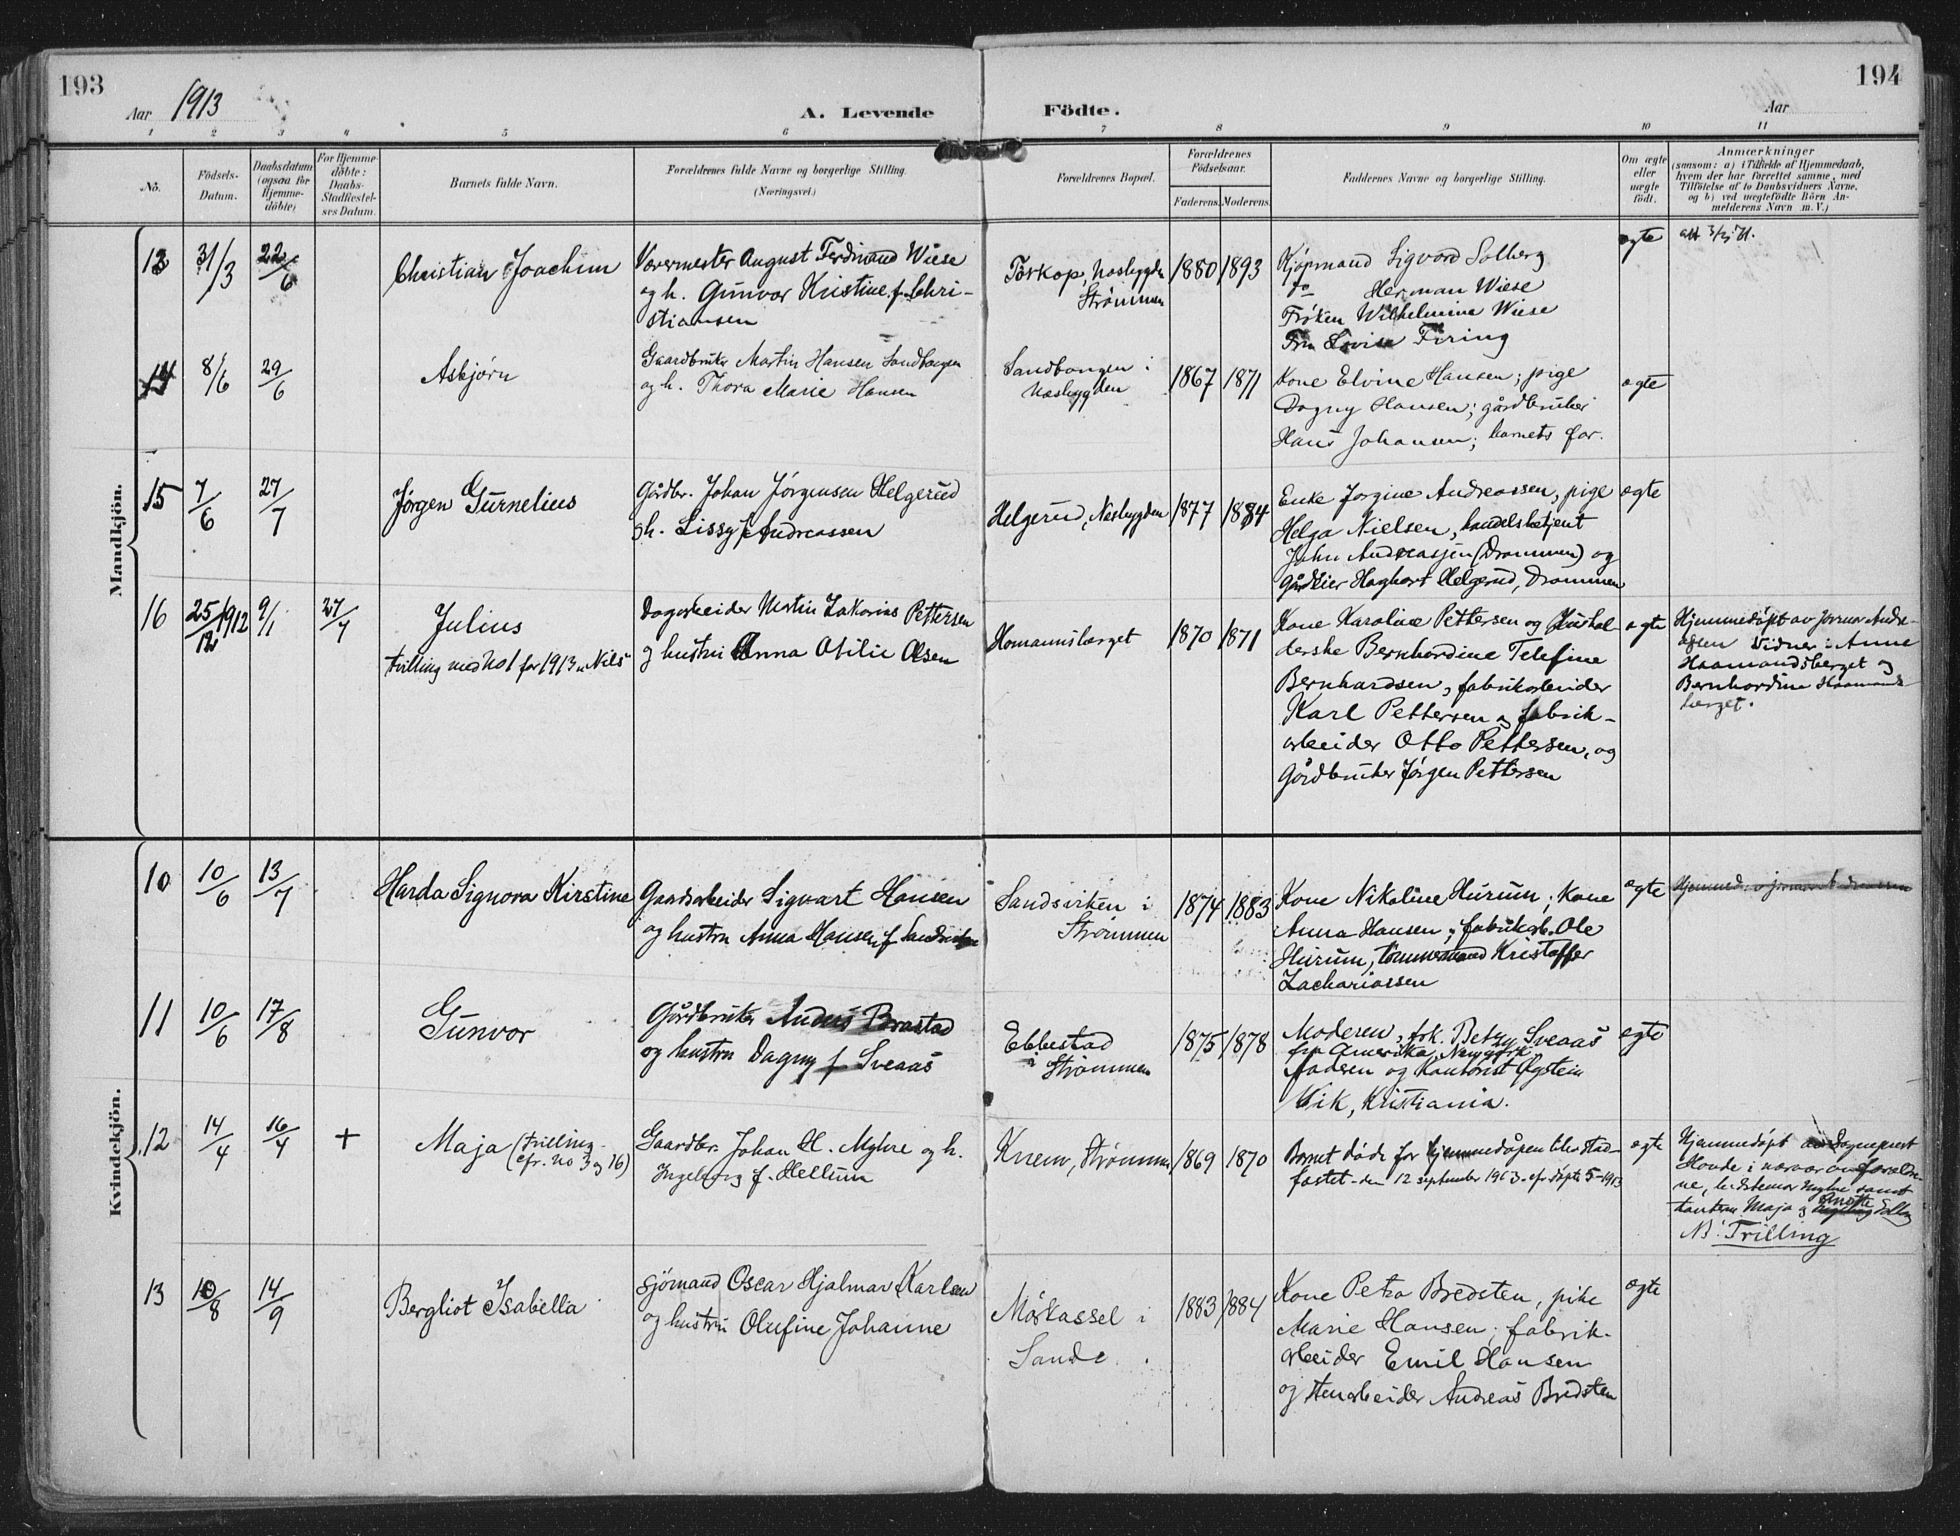 193
194
Aar 1913
A. Levende
Födte.
Aar
1 2 3 4 5 6 7 8 9 10 11
No.
Födsels-
Datum.
Daabsdatum
(ogsaa for
Hjemme-
döbte)
For Hjemme-
döbte:
Daabs-
Stadfæstel-
ses Datum.
Barnets fulde Navn.
Forældrenes fulde Navne og borgerlige Stilling.
(Næringsvei.)
Forældrenes Bopæl.
Forældrenes
Födselsaar.
Faderens. Moderens.
Faddernes Navne og borgerlige Stilling.
Om ægte
eller
uægte
födt.
Anmærkninger
(saasom: a) i Tilfælde af Hjemmedaab,
hvem der har forrettet samme, med
Tilföielse af to Daabsvidners Navne,
og b) ved uægtefödte Börn An-
melderens Navn m. V.)
Mandkjön.
13
31/3
22/6
Christian Joachim
Værmester August Ferdinand Wiese
og h. Gunvor Kristine f. Chri-
stiansen
Torkop, Nesbygden
Strømmen
1880 1893
Kjøpmand Sigvard Solberg
do Herman Wiese
Frøken Wilhelmine Wiese
Fru Lovise Firing
ægte
14
8/6
29/6
Asbjørn
Gaardbruker Martin Hansen Sandbongen
og h. Thora Marie Hansen
Sandbongen i
Nesbygden
1867 1871
Kone Elvine Hansen; pige
Dagny Hansen; gårdbruker
Hans Johansen; barnets far.
ægte
15
7/6
27/7
Jørgen Gurnelius
Gårdbr. Johan Jørgensen Helgerud
og h. Lissy f. Andreassen
Helgerud, Nesbygden
1877 1884
Enke Jorgine Andreassen, pige
Helga Nielsen, handelsbetjent
John Andreassen (Drammen) og
gårdeier Hagbart Helgerud, Drammen
ægte
16
25/12 1912
9/1
27/7
Julius
tvilling med No 1 for 1913 Nils
Dagarbeider Martin Zakarias Pettersen
og hustru Anna Otilie Olsen
Homannsberget
1870 1871
Kone Karoline Pettersen og Hushol-
derske Bernhardine Telefine
Bernhardsen, fabrikarbeider
Karl Pettersen og fabrik-
arbeider Otto Pettersen, og
Gårdbruker Jørgen Pettersen
ægte
Hjemmedøpt av jormor Andre-
asen Vidner: Anne
Haamandsberget og
Bernhardine Haamands-
berget.
Kvindekjön.
10
10/6
13/7
Harda Signora Kirstine
Gaardarbeider Sigvart Hansen
og hustru Anna Hansen f.
Sandsvirken i
Strømmen
1874 1883
Kone Nikoline Hurum; Kone
Anna Hansen; fabrikarb. Ole
Hurum, tømmermand Kristoffer
Zachariassen
ægte
11
10/6
17/8
Gunvor
Gårdbruker Anders Brastad
og hustru Dagny f. Sveaas
Ebbestad
i Strømmen
1875 1878
Moderen, frk. Betzy Sveaas
fra Amerika, Newyork,
og Kontorist Øystein
Vik, Kristiania.
ægte
12
14/4
16/4
+
Maja (trilling
cfr. no 3 og 16)
Gaardbr. Johan H. Myhre og h.
Ingeborg f. Hellum
Knem, Strømmen
1869 1870
Barnet døde før hjemmedåpen blev stad-
fæstet den 12 september 1913.
ægte
Hjemmedøpt av Sogneprest
Hovde i nærvær av foreldre-
ne, bedstemor Myhre samt
tanterne Maja og Anette
NB. Trilling
13
10/8
14/9
Bergliot Isabella
Sjømand Oscar Hjalmar Karlsen
og hustru Olufine Johanne
Mørkassel i
Sande.
1883 1884
Kone Petra Bredsten, pike
Marie Hansen; fabrik-
arbeider Emil Hansen
og stenarbeider Andreas Bredsten
ægte